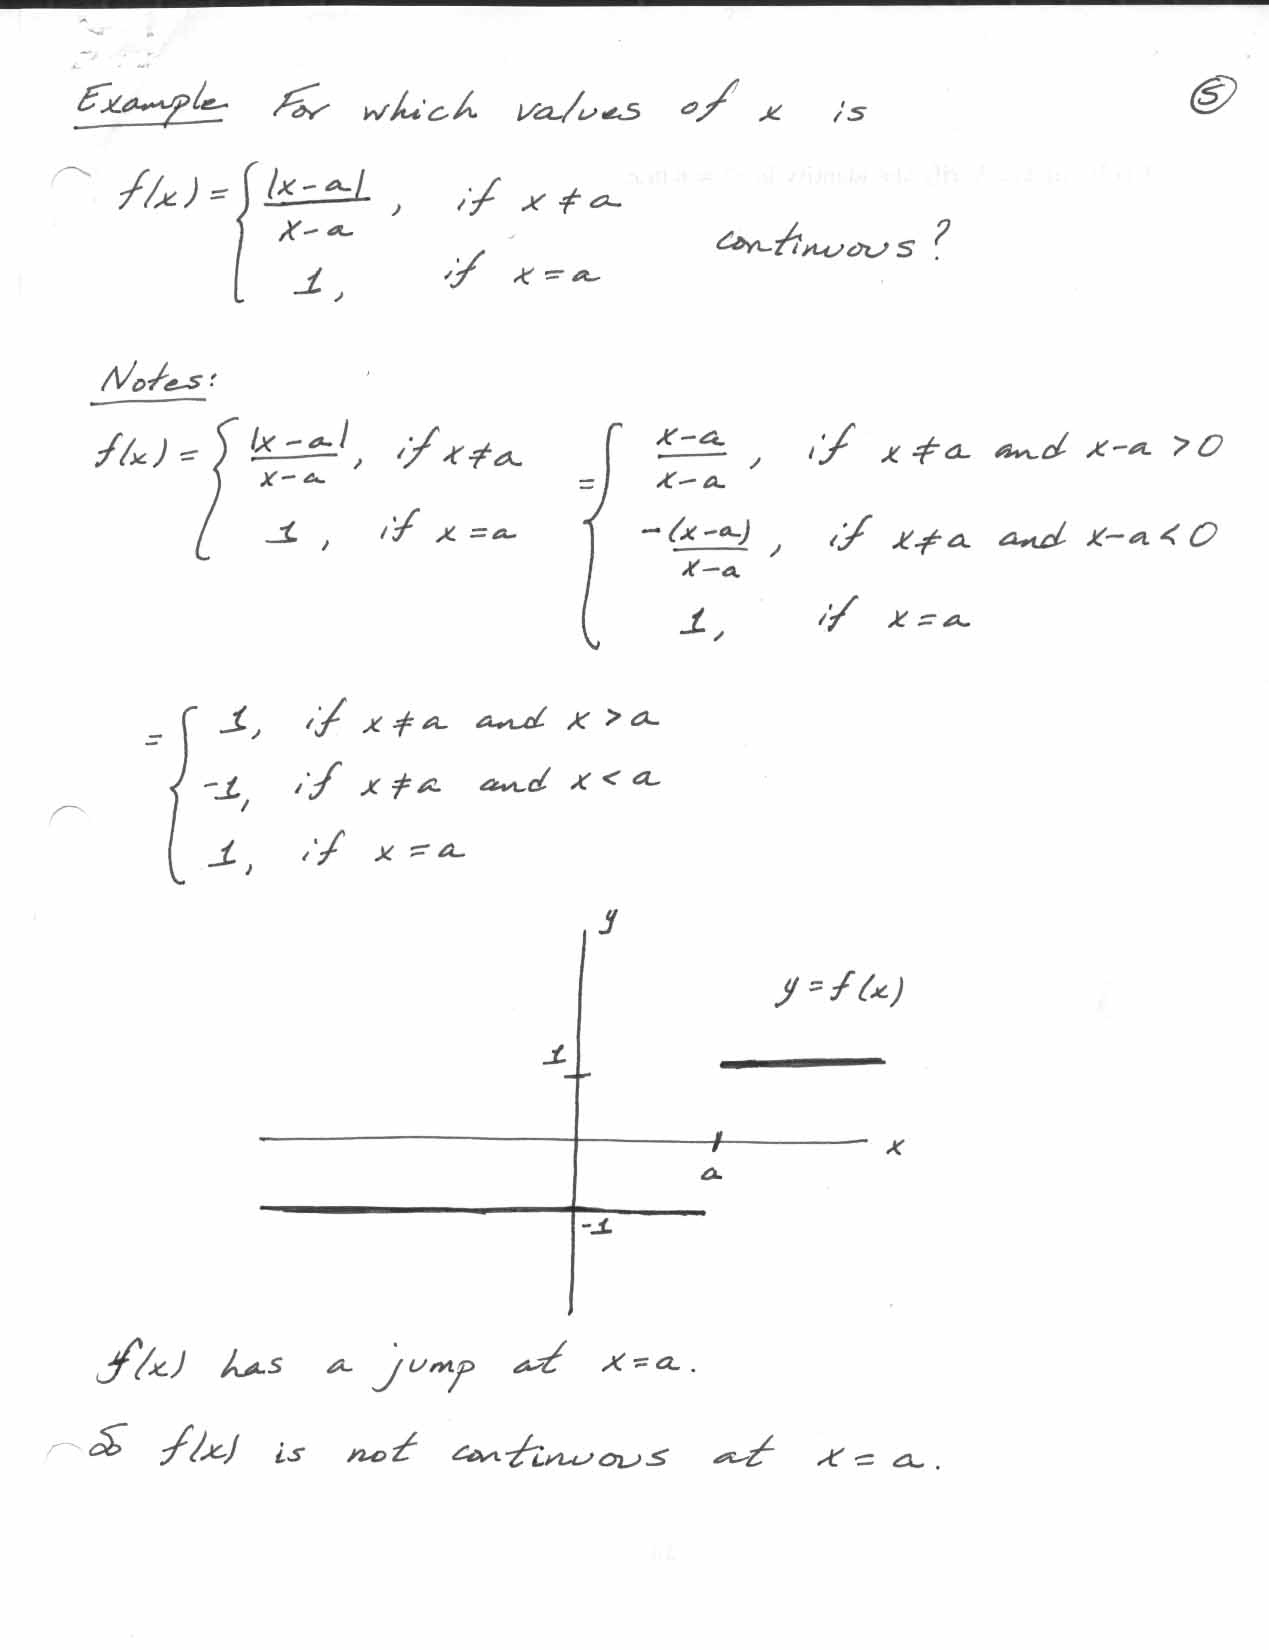 Example For which values of x is ⑤
f(x) = { |x-a| / x-a , if x ≠ a
1, if x = a
continuous?
Notes:
f(x) = { |x-a| / x-a , if x ≠ a = { x-a / x-a , if x ≠ a and x-a > 0
1, if x = a
-(x-a) / x-a , if x ≠ a and x-a < 0
1, if x = a
= { 1, if x ≠ a and x > a
-1, if x ≠ a and x < a
1, if x = a
y
y = f(x)
1
x
a
-1
f(x) has a jump at x = a.
So f(x) is not continuous at x = a.